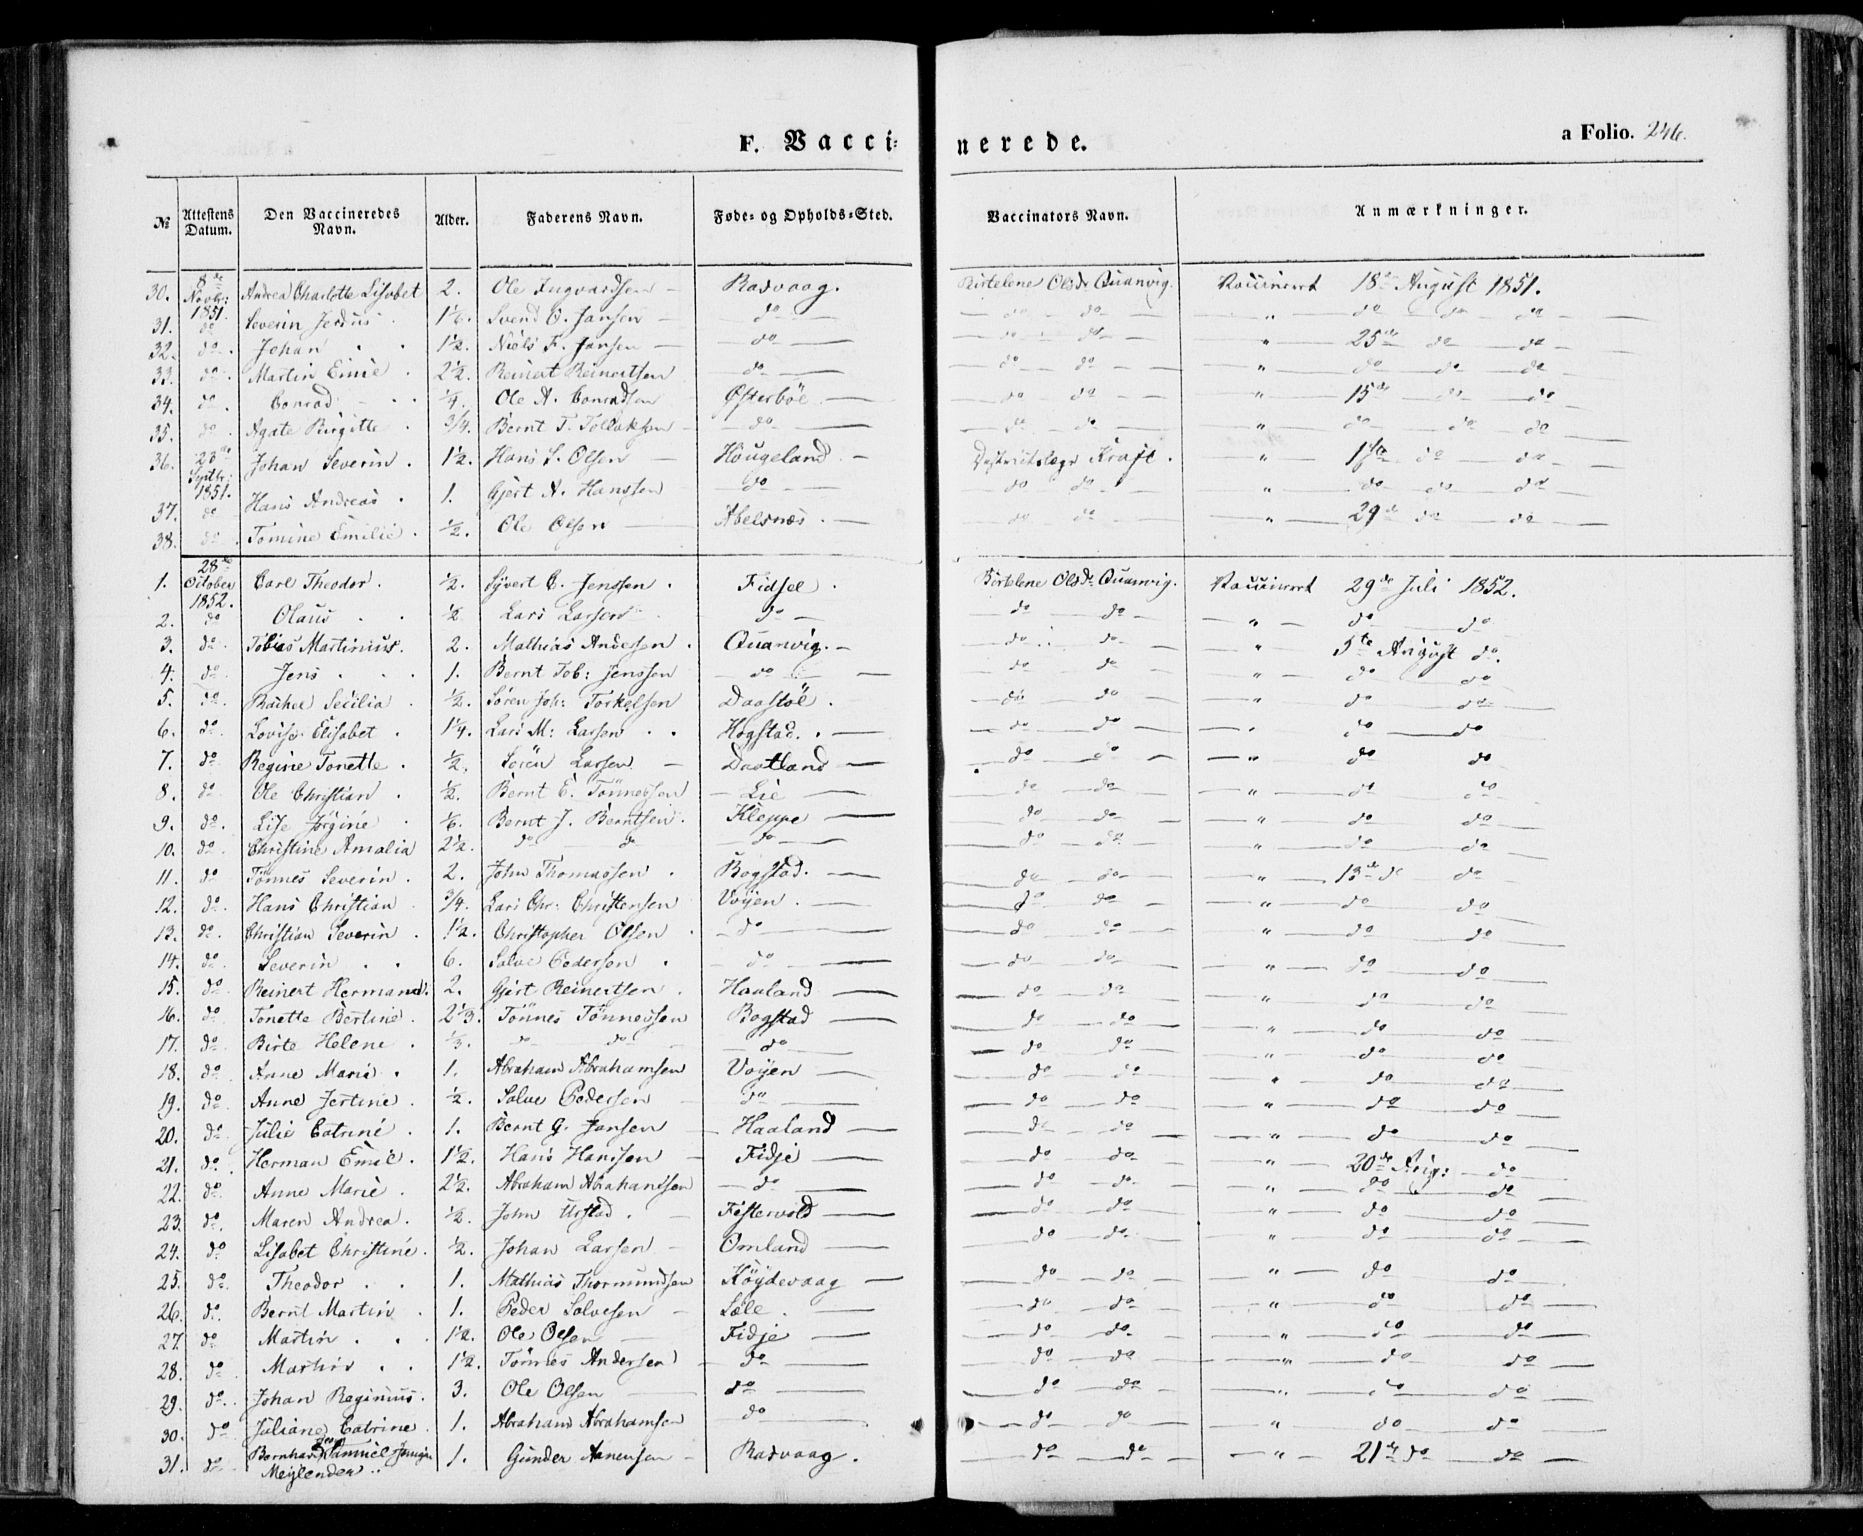 F. Vacci= nerede. a Folio. 246.
№ Attestens Datum. Den Vaccineredes Navn. Alder. Faderens Navn. Føde= og Opholds=Sted. Vaccinators Navn. Anmærkninger.
30. 8de Novbr: 1851. Andrea Charlotte Lisabet 2. Ole Ingvardsen — Rasvaag. Birtelene Olsdr Quanvig. Vaccineret 18de August 1851.
31. do Severin Jerdus 1½. Svend O. Jansen — do — do do — " — do do do —
32. do. Johan 1½. Niels F. Jansen — do — do do — " 25de do do —
33. do. Martin Emil 2½. Reinert Reinertsen do — do do — " do do do —
34. do. Conrad ¼. Ole A. Conradsen Østerböe — do do — " 15de do do —
35. do. Agate Birgitte ¾. Bernt T. Tollaksen — do — do do — " do do do —
36. 23de Septbr: 1851. Johan Severin. 1½. Hans S. Olsen — Hougeland — Districtslæge Kraft. " — 1ste do do —
37. do Hans Andreas. 1. Gjert A. Hanssen do — do do — " — do do do —
38. do. Tomine Emilie. ½. Ole Olsen — Abelsnæs. — do do — " — 29de do do —
1. 28de October 1852. Carl Theodor. ½. Syvert C. Jenssen. Fidsel. Birtelene Olsdr Quanvig. Vaccineret 29de Juli 1852.
2. do Olaus ½ Lars Larsen do — do do — " — do do
3. do. Tobias Martinius. 2. Mathias Andersen. Quanvig. — do do — " 5te August do.
4. do. Jens 1. Bernt Tob: Jenssen — do — do do — " — do do
5. do. Rachel Secilia ½. Sören Joh: Torkelsen Daastöl. do do — " — do do
6. do. Lovise Elisabet. 1¼. Lars M: Larsen Hogstad. — do do — " do do
7. do Regine Tonette. ½. Sören Larsen — Daatland — do do — " — do do
8. do. Ole Christian ½. Bernt E. Tönnessen — Lie — do do — " — do do
9. do. Lise Jörgine ⅙. Bernt J. Berntsen. Kleppe — do do — " — do do
10. do. Christine Amalia 2½. do do do — do do — " — do do
11. do Tönnes Severin. 2. John Thomassen. Bogstad. — do do — " — 13de do do
12. do. Hans Christian ¾. Lars Chr: Christensen Vöyen. — do do — " — do do
13. do. Christian Severin. 1½. Christopher Olsen. do — do do — " — do do
14. do. Severin 6. Salve Pedersen. do — do do — " — do do
15. do. Reinert Hermand. 2. Gjert Reinertsen. Haaland — do do — " — do do
16. do Tonette Bertine. 2⅓. Tönnes Tönnessen Bogstad — do do — " — do do
17. do. Birte Helene. ⅓. do do — do — do do — " — do do
18. do Anne Marie. 1. Abraham Abrahamsen Vöyen — do do — " — do do
19. do. Anne Jertine. ½. Salve Pedersen — do — do do — " — do do
20. do. Julie Catrine. 1. Bernt G. Jansen — Haaland — do do — " — do do
21. do. Herman Emil. 1½. Hans Hanssen — Fidje — do do — " — 20de Aug: do
22. do. Anne Marie. 2½. Abraham Abrahamsen — do — do do — " — do do
23. do. Maren Andrea. ½. John Urstad. — Fistervold — do do — " — do do
24. do Lisabet Christine. ½. Johan Larsen — Omland — do do — " do do
25. do. Theodor 1. Mathias Thormundsen Köydevaag — do do — " — do do
26. do. Bernt Martin 1. Peder Salvesen — Læle. — do do — " — do do
27. do Martin 1½. Ole Olsen — Fidje — do do — " — do do
28. do Martin 1½. Tönnes Andersen do — do do — " — do do
29. do. Johan Reginius. 3. Ole Olsen — do — do do — " — do do
30. do Juliane Catrine. 1. Abraham Abrahamsen do — do do — " — do do
31. do Bernhard Samuel
Meylender 1. Gunder Aanensen — Rasvaag. do do — " — 21de do do